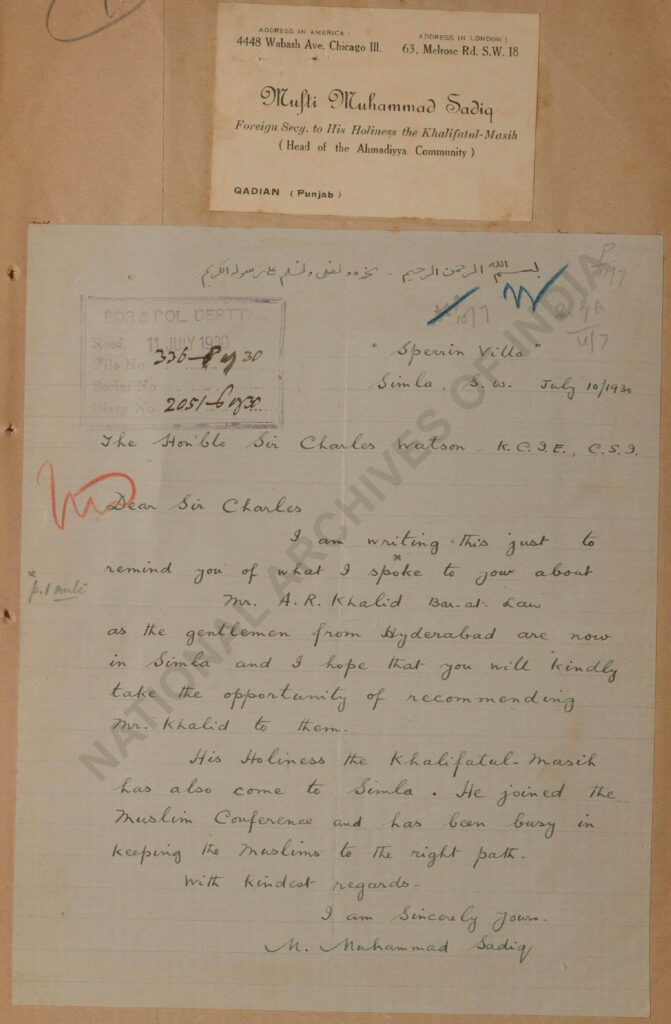 ADDRESS IN AMERICA :
4448 Wabash Ave. Chicago Ill.
ADDRESS IN LONDON :
63, Melrose Rd. S.W. 18
Mufti Muhammad Sadiq
Foreign Secy. to His Holiness the Khalifatul-Masih
( Head of the Ahmadiyya Community )
QADIAN ( Punjab )
بسم الله الرحمن الرحيم - نحمده ونصلی ونسلم علی رسوله الکریم
10/7
11/7
FOR & POL. DEPTT.
Recd. 11 JULY 1930
File No 336-P of 30
Serial No
Diary No 2051-P of 30
"Sperrin Villa"
Simla, S.W. July 10/1930
The Hon'ble Sir Charles Watson K.C.I.E., C.S.I.
Dear Sir Charles
I am writing this just to
remind you of what I spoke to you about
x
x
p. 1 ante
Mr. A.R. Khalid Bar-at-Law
as the gentlemen from Hyderabad are now
in Simla and I hope that you will kindly
take the opportunity of recommending
Mr. Khalid to them.
His Holiness the Khalifatul-Masih
has also come to Simla. He joined the
Muslim Conference and has been busy in
keeping the Muslims to the right path.
With kindest regards-
I am Sincerely yours-
M. Muhammad Sadiq
NATIONAL ARCHIVES OF INDIA